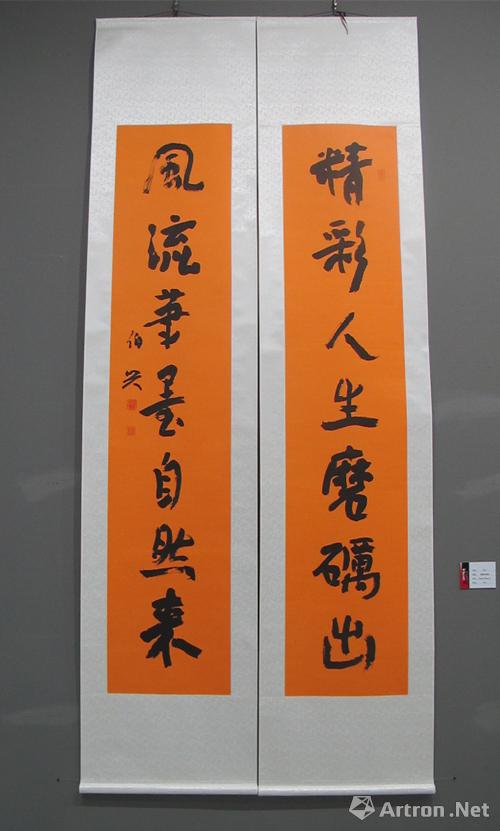 精彩人生磨礪出
風流筆墨自然来
伯兴
Artron.Net